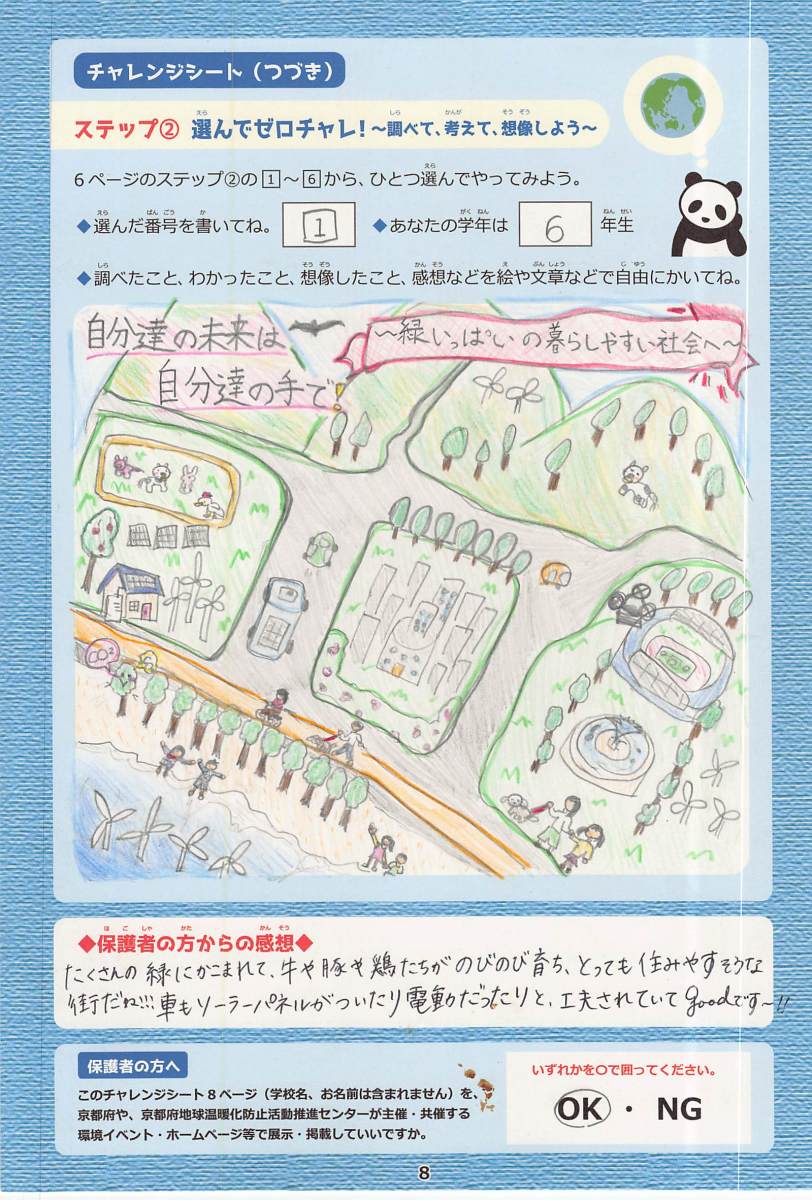 チャレンジシート（つづき）
ステップ② 選んでゼロチャレ！～調べて、考えて、想像しよう～
えら しら かんが そう ぞう
6ページのステップ②の1～6から、ひとつ選んでやってみよう。
えら
◆選んだ番号を書いてね。 1 ◆あなたの学年は 6 年生
えら ばん ごう か がく ねん ねん せい
◆調べたこと、わかったこと、想像したこと、感想などを絵や文章などで自由にかいてね。
しら そう ぞう かん そう え ぶん しょう じ ゆう
自分達の未来は
自分達の手で!
～緑いっぱいの暮らしやすい社会へ～
CO2
◆保護者の方からの感想◆
ほ ご しゃ かた かん そう
たくさんの緑にかこまれて、牛や豚や鶏たちがのびのび育ち、とっても住みやすそうな
街だね!!! 車もソーラーパネルがついたり電動だったりと、工夫されていてgoodです～!!
保護者の方へ
このチャレンジシート8ページ（学校名、お名前は含まれません）を、
京都府や、京都府地球温暖化防止活動推進センターが主催・共催する
環境イベント・ホームページ等で展示・掲載していいですか。
いずれかを○で囲ってください。
OK・NG
8